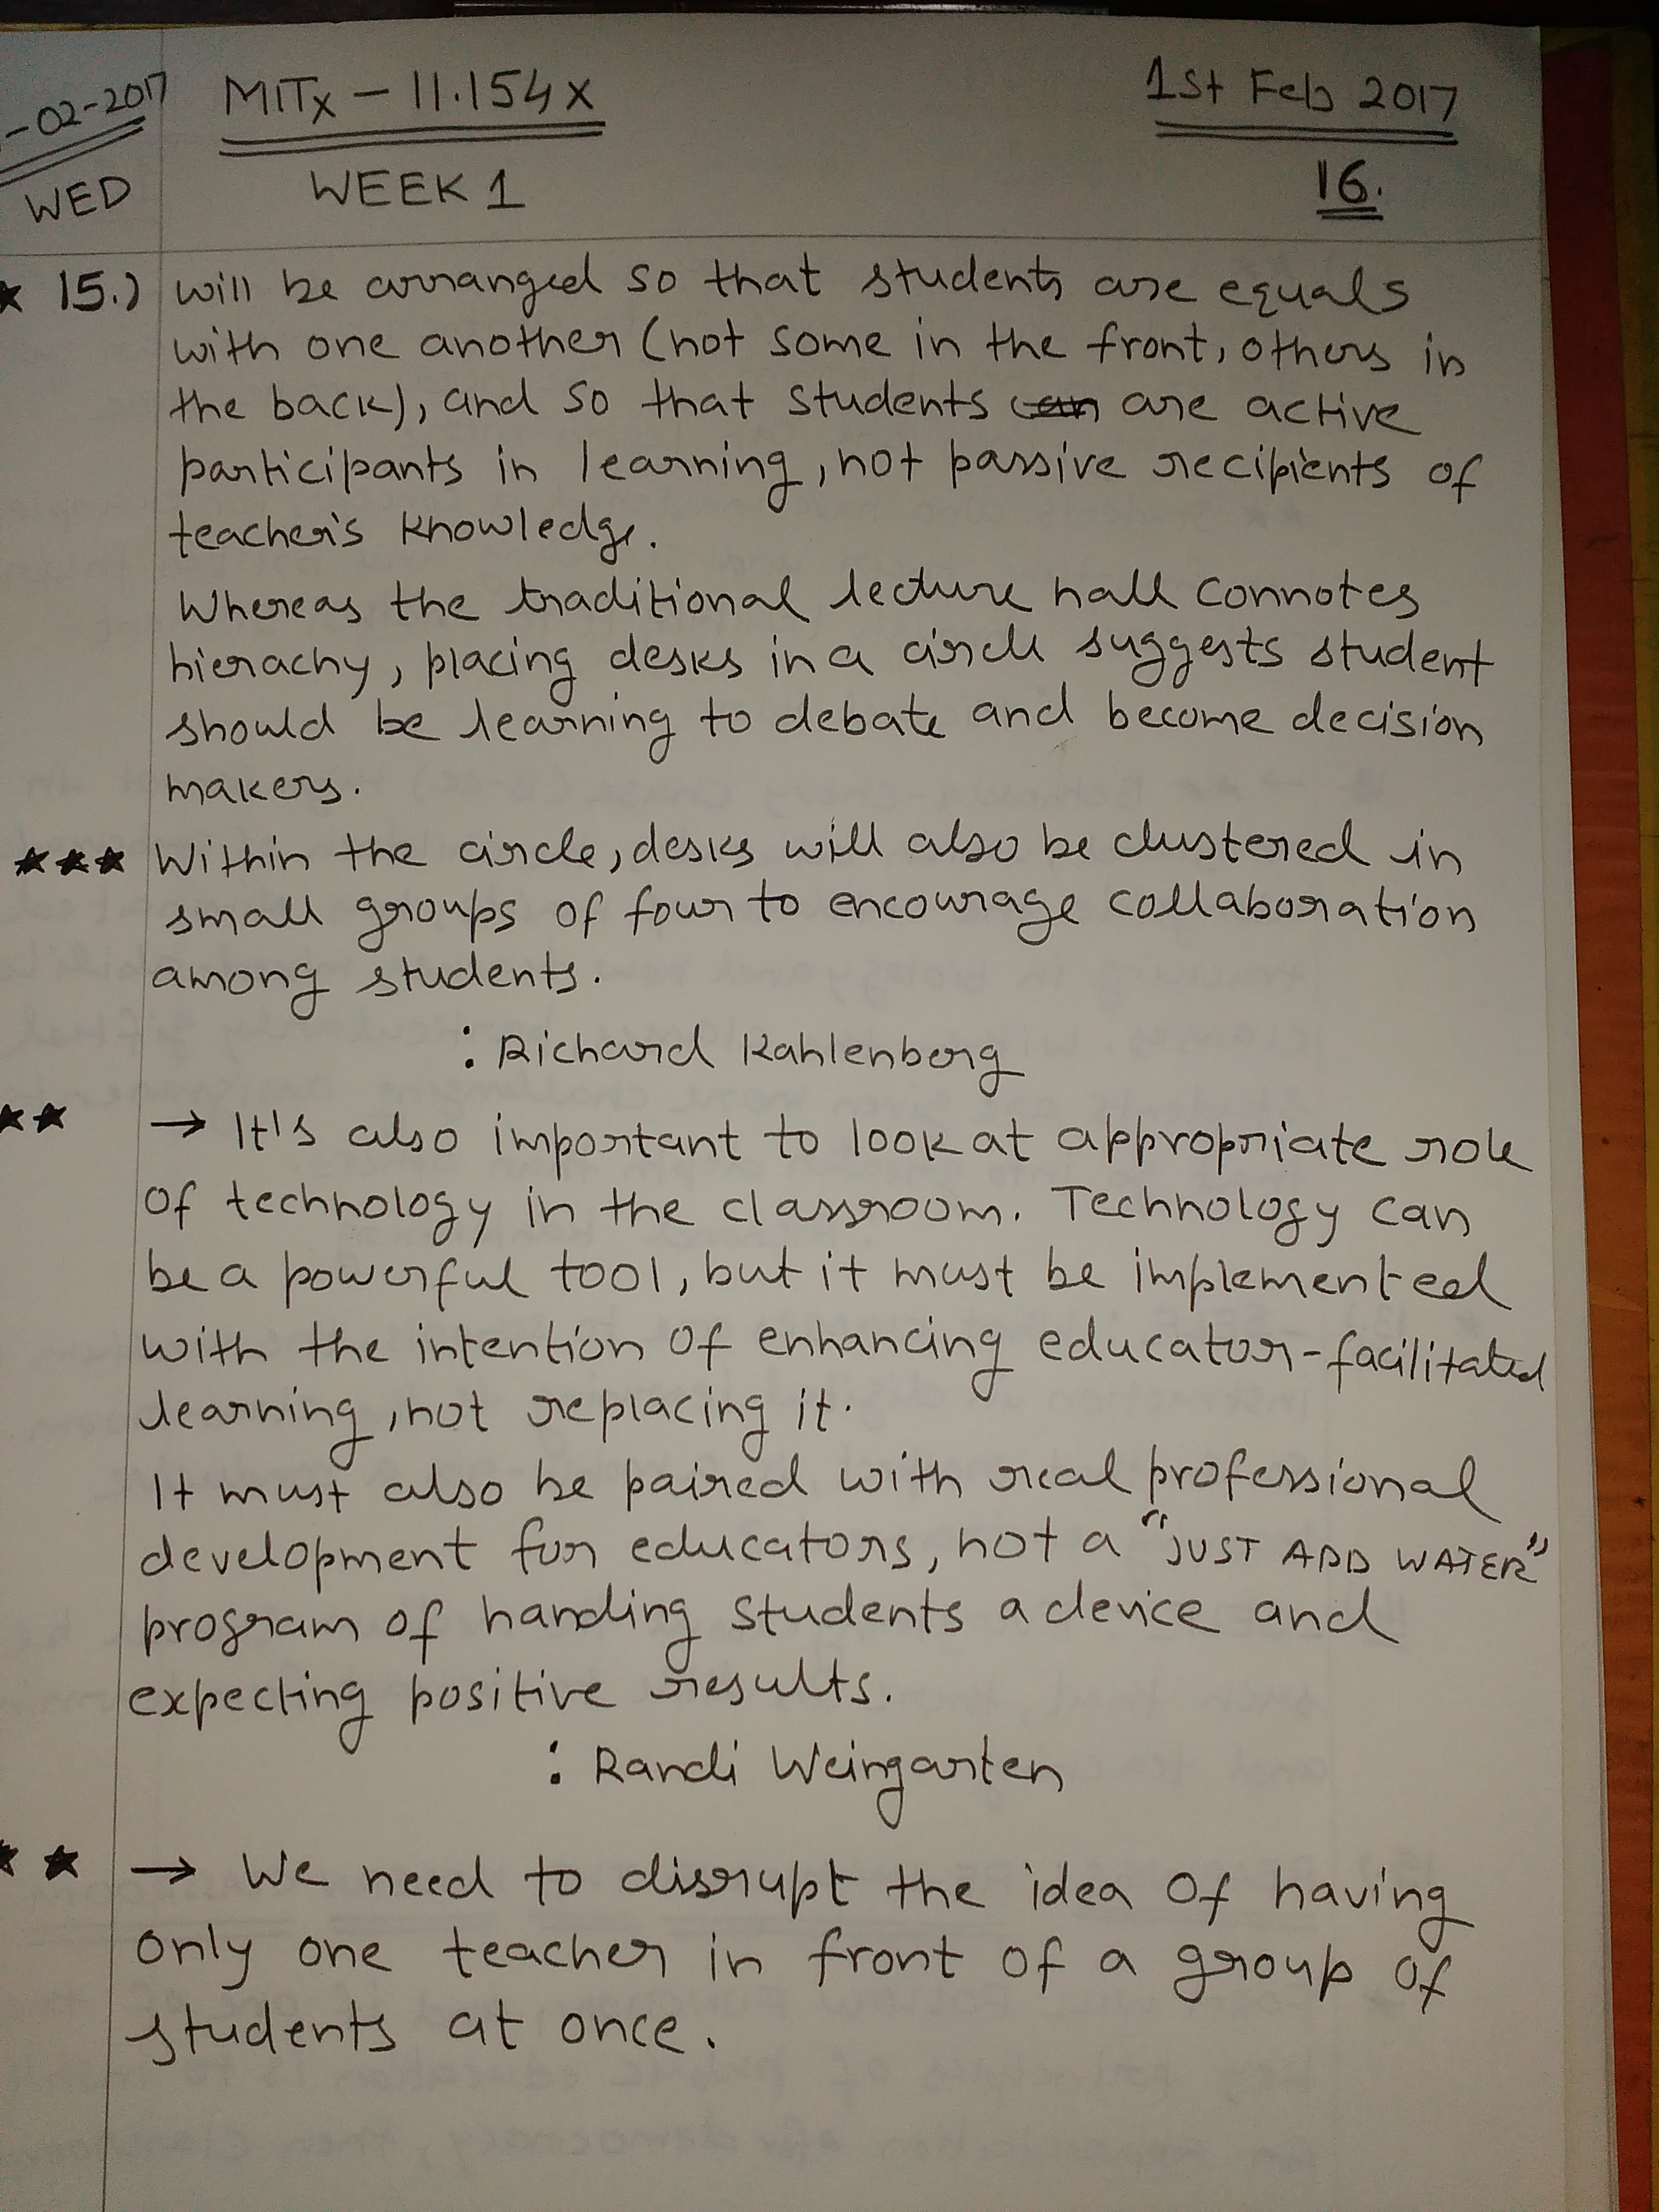 -02-2017 MITx - 11.154x 1st Feb 2017
WED WEEK 1 16.
15.) will be arranged so that students are equals
with one another (not some in the front, others in
the back), and so that students can are active
participants in learning, not passive recipients of
teacher's knowledge.
Whereas the traditional lecture hall connotes
hierachy, placing desks in a circle suggests student
should be learning to debate and become decision
makers.
★★★ Within the circle, desks will also be clustered in
small groups of four to encourage collaboration
among students.
: Richard Kahlenberg
★★ → It's also important to look at appropriate role
of technology in the classroom. Technology can
be a powerful tool, but it must be implemented
with the intention of enhancing educator-facilitated
learning, not replacing it.
It must also be paired with real professional
development for educators, not a "JUST ADD WATER"
program of handing students a device and
expecting positive results.
: Randi Weingarten
★★ → We need to disrupt the idea of having
only one teacher in front of a group of
students at once.